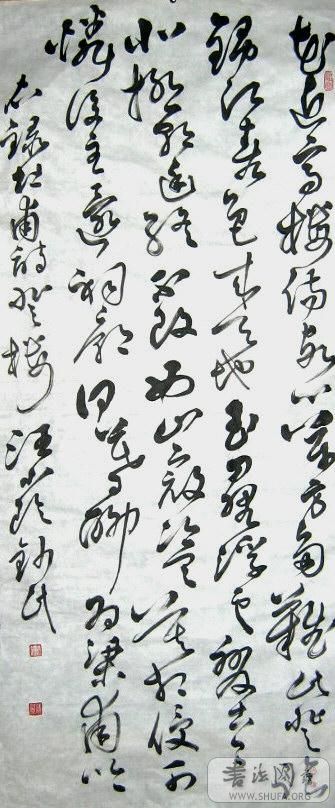 花近高樓傷客心萬方多難此登臨
錦江春色來天地玉壘浮雲變古今
北極朝廷終不改西山寇盜莫相侵可
憐後主還祠廟日暮聊為梁甫吟
右録杜甫詩登樓 汪
WWW.SHUFA.ORG